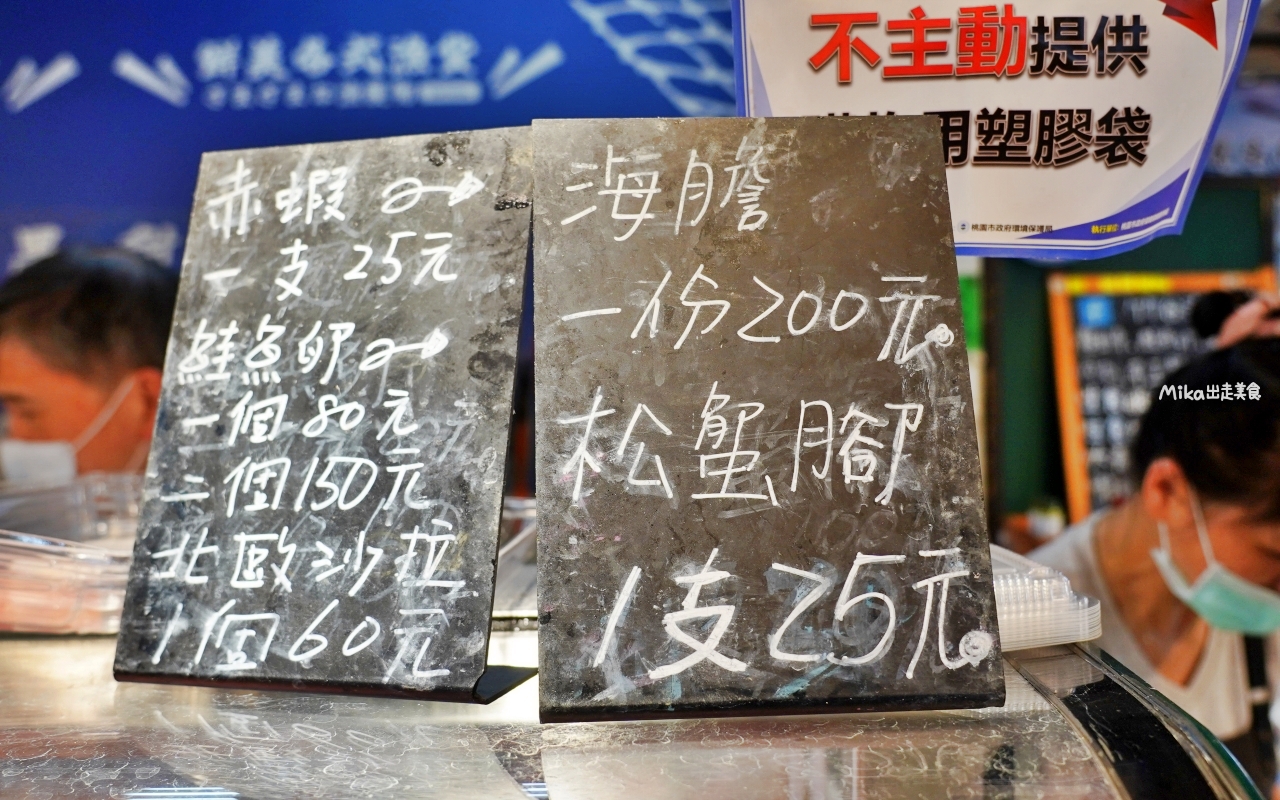 赤蝦
一支 25元
鮭魚卵
一個 80元
二個 150元
北歐沙拉
1個 60元
海膽
一份 200元
松蟹腳
1支 25元
不主動提供
用塑膠袋
桃園市政府環境保護局
Mika出走美食